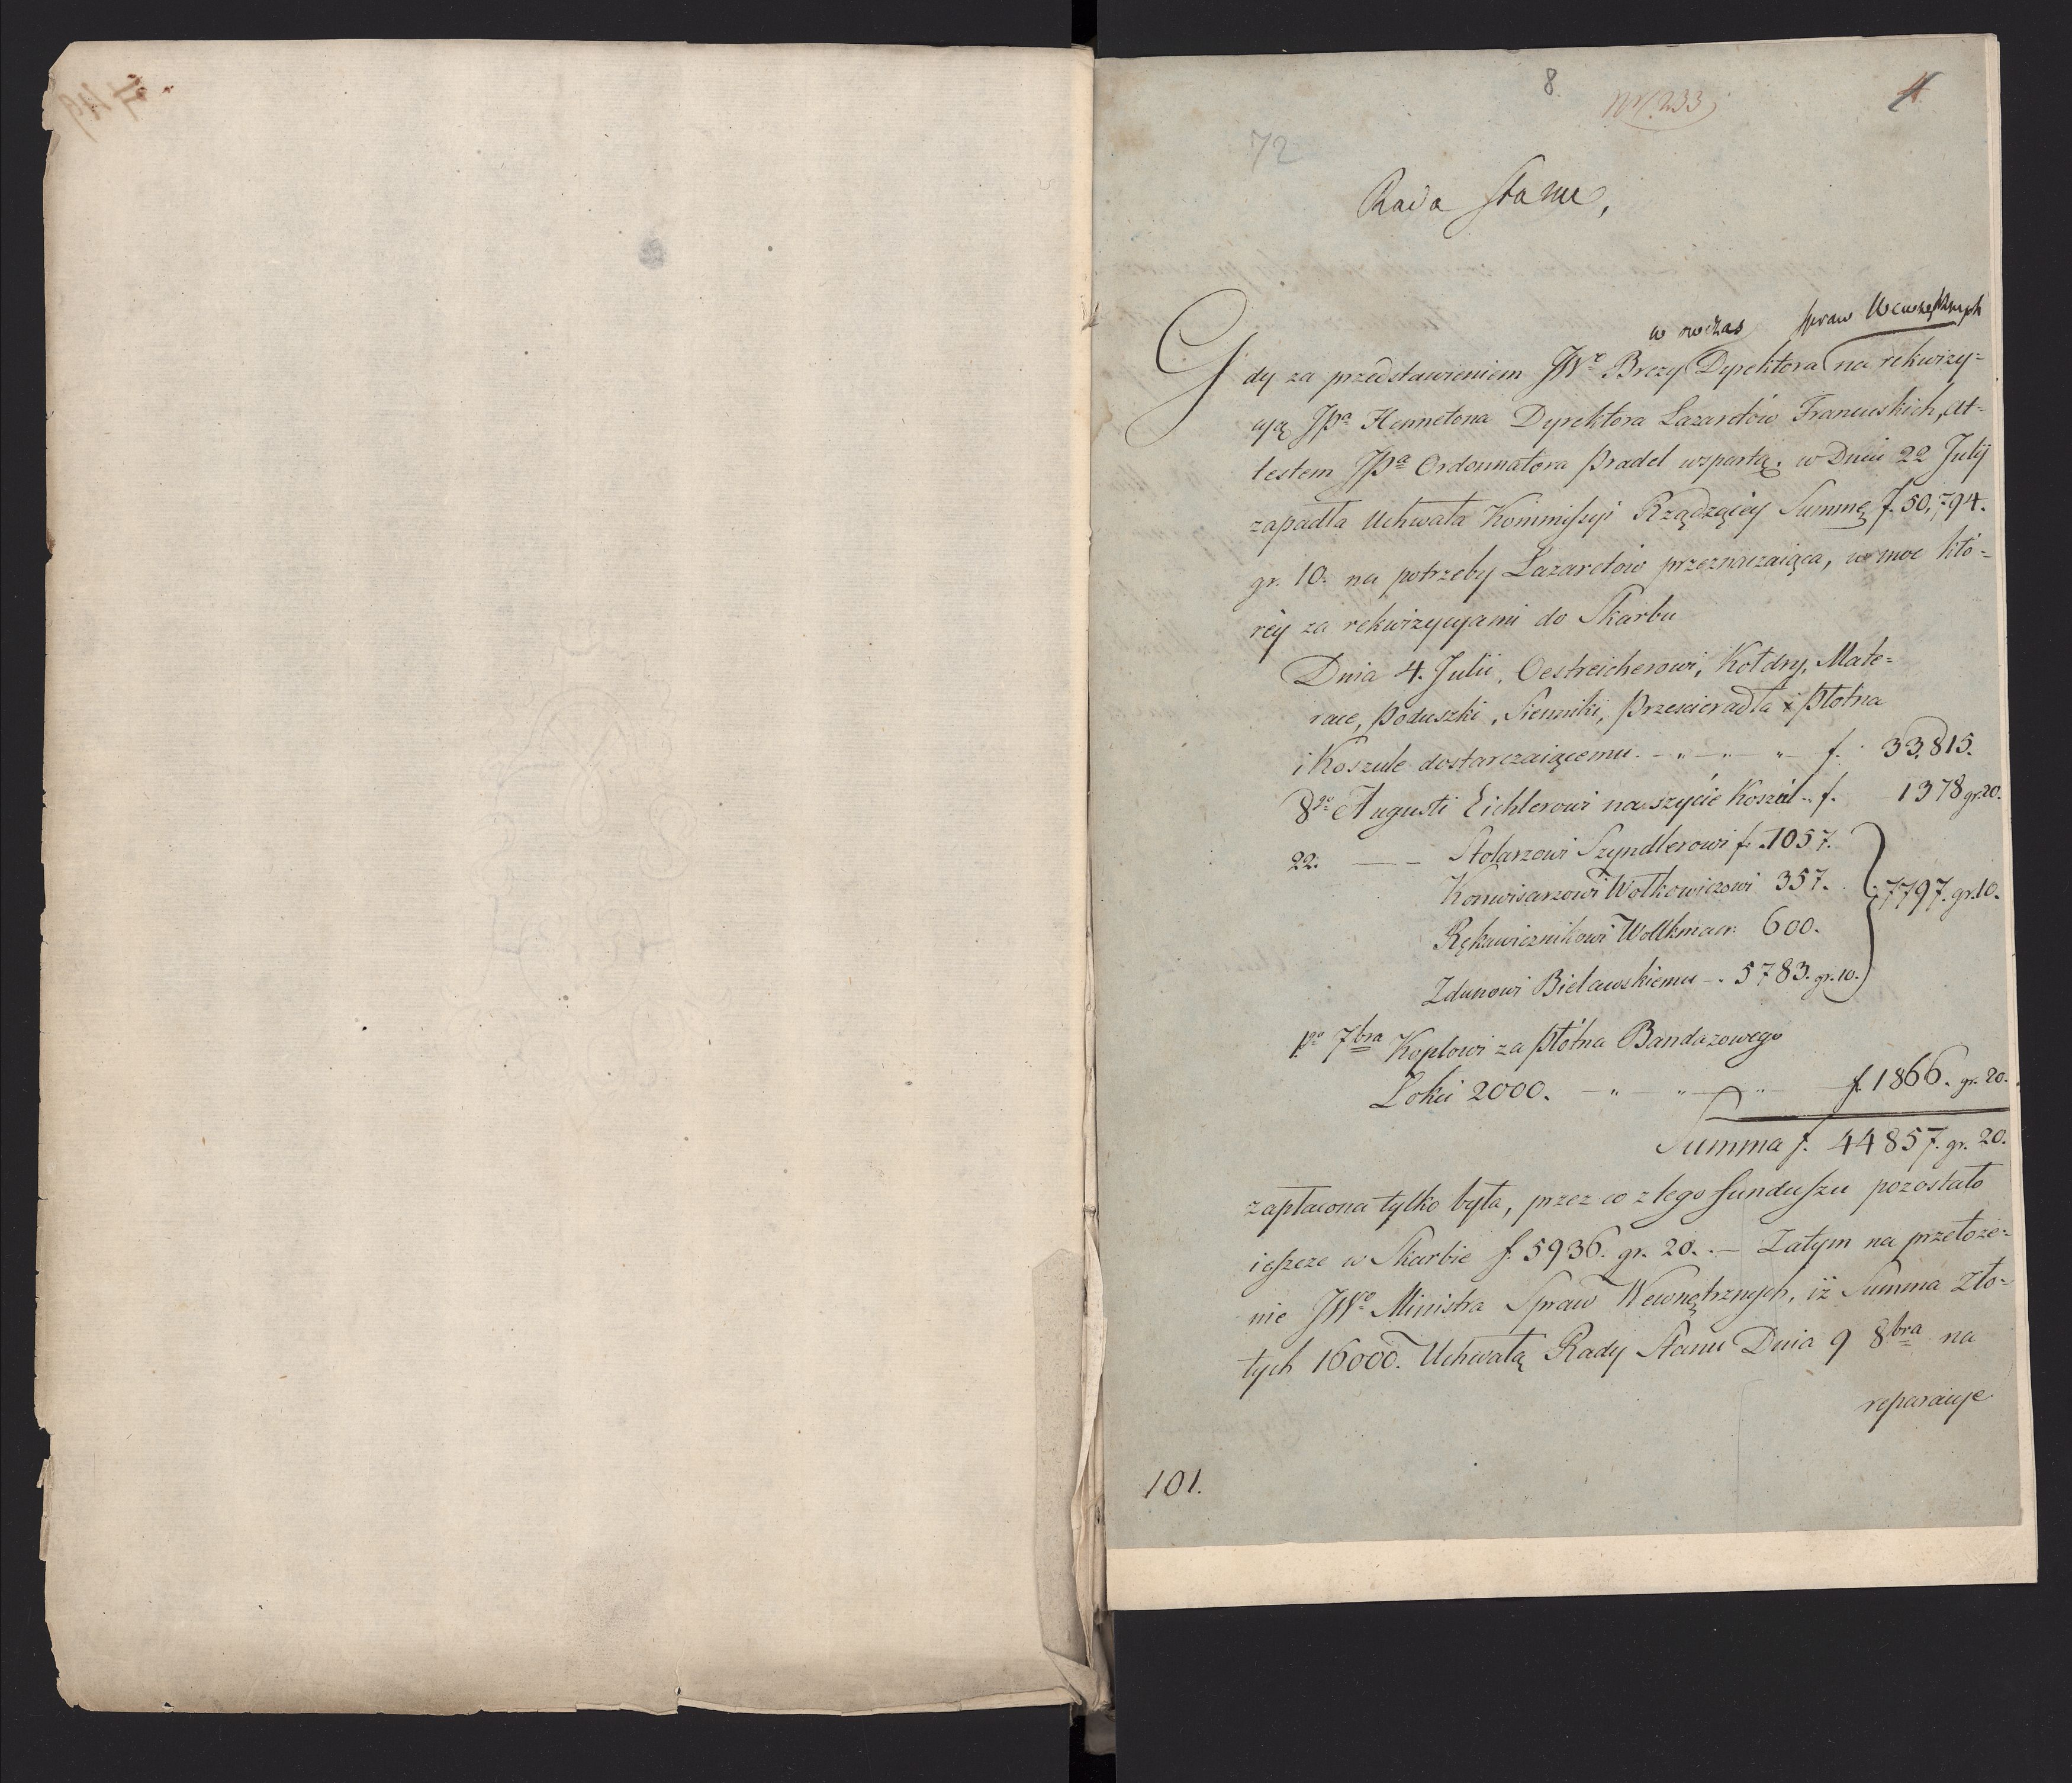 8.
Nr. 233
4
72
Rada Stanu,
w owczas spraw Wewnętrznych
Gdy za przedstawieniem JWo Brezy Dyrektora na rekwizy=
cyą JPa Hennetona Dyrektora Lazaretów Francuskich, at=
testem JPa Ordonnatora Pradel wspartą, w Dniu 22 Julij
zapadła Uchwała Kommissyi Rządzącéy Summę f. 50,794.
gr. 10. na potrzeby Lazaretów przeznaczaiąca, w moc któ=
réy za rekwizycyami do Skarbu
Dnia 4. Julii, Oestreicherowi, Kołdry, Mate=
race, Poduszki, Sienniki, Prześcieradła i Płótna
i Koszule dostarczaiącemu. — „ — „ — f. 33,815.
8go Augusti Eichlerowi na szycie Koszul „ f. 1378 gr. 20.
22. — — Stolarzowi Szyndlerowi f. 1057.
Konwisarzowi Wołkowiczowi 357. 7797. gr. 10.
Rękawicznikowi Wollkmaer. 600.
Zdunowi Bielawskiemu — . 5783. gr. 10.
1go 7bra Koplowi za Płótna Bandażowego
Łokci 2000. — „ — „ — „ — f. 1866. gr. 20.
Summa f. 44857. gr. 20.
zapłacona tylko była, przez co z tego funduszu pozostało
ieszcze w Skarbie f. 5936. gr. 20. . — Zatym na przełoże=
nie JWo Ministra Spraw Wewnętrznych, iż Summa Zło=
tych 16000. Uchwałą Rady Stanu Dnia 9 8bra na
reparacye
101.